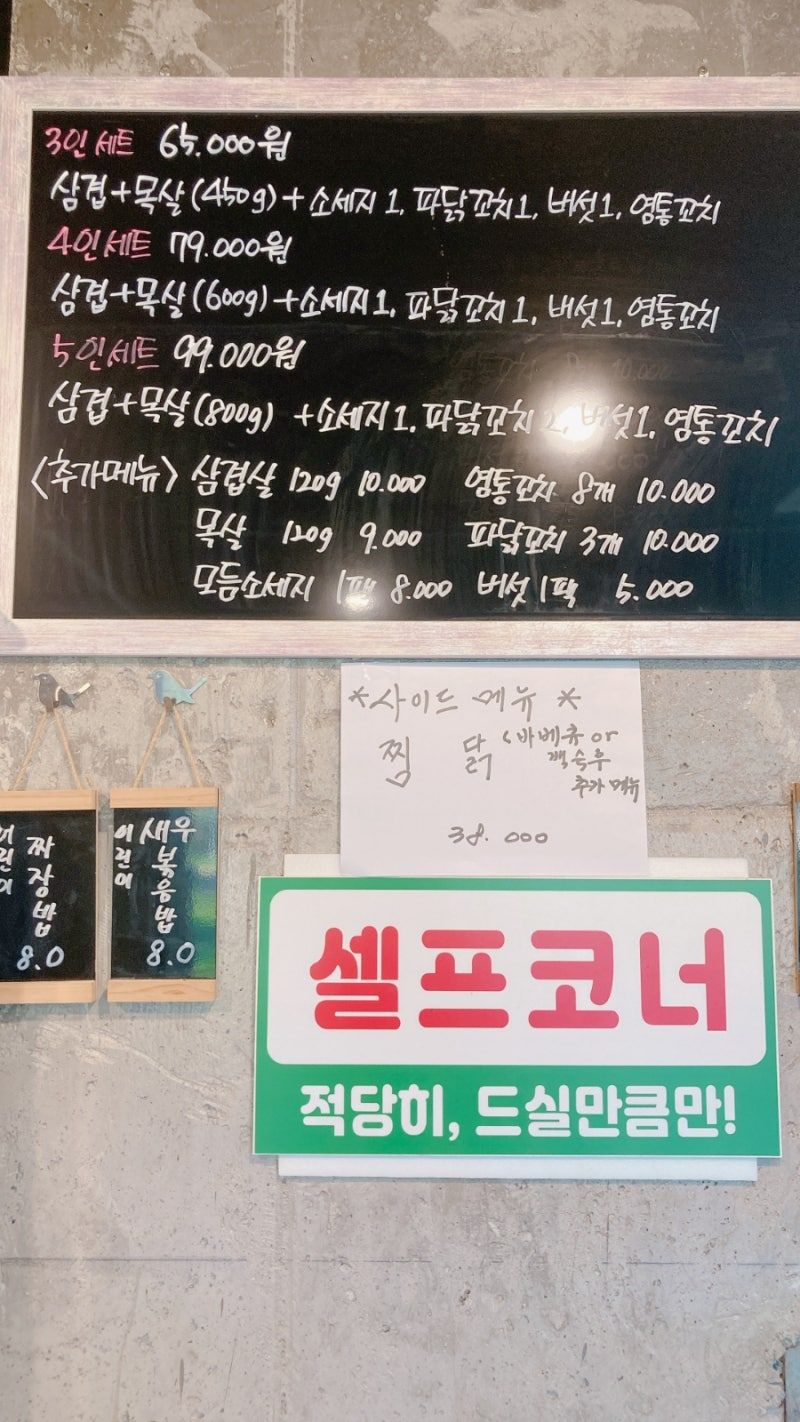 3인세트 65.000원
삼겹+목살(450g)+소세지1, 파닭꼬치1, 버섯1, 염통꼬치
4인세트 79.000원
삼겹+목살(600g)+소세지1, 파닭꼬치1, 버섯1, 염통꼬치
5인세트 99.000원
삼겹+목살(800g) +소세지1, 파닭꼬치2, 버섯1, 염통꼬치
<추가메뉴> 삼겹살 120g 10.000 염통꼬치 8개 10.000
목살 120g 9.000 파닭꼬치 3개 10.000
모듬소세지 1팩 8.000 버섯 1팩 5.000
*사이드 메뉴*
찜닭 (바베큐 or
백숙우
추가메뉴
38.000
어린이
짜장밥
8.0
어린이
새우볶음밥
8.0
셀프코너
적당히, 드실만큼만!